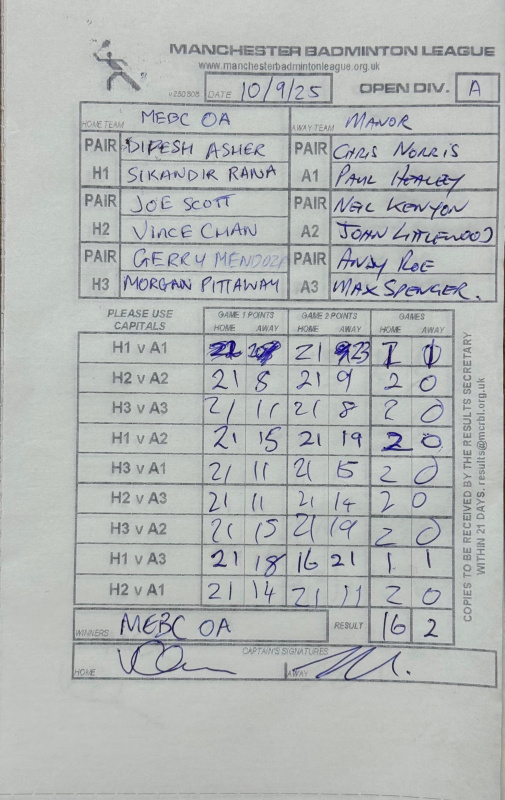 MANCHESTER BADMINTON LEAGUE
www.manchesterbadmintonleague.org.uk
v250808 DATE 10/9/25 OPEN DIV. A
HOME TEAM MEBC OA AWAY TEAM MANOR
PAIR DIPESH ASHER PAIR CHRIS NORRIS
H1 SIKANDIR RANA A1 PAUL HEALEY
PAIR JOE SCOTT PAIR NEIL KENYON
H2 VINCE CHAN A2 JOHN LITTLEWOOD
PAIR GERRY MENDOZA PAIR ANDY ROE
H3 MORGAN PITTAWAY A3 MAX SPENCER.
PLEASE USE CAPITALS GAME 1 POINTS GAME 2 POINTS GAMES
HOME AWAY HOME AWAY HOME AWAY
H1 v A1 21 23 1 1
H2 v A2 21 8 21 9 2 0
H3 v A3 21 11 21 8 2 0
H1 v A2 21 15 21 19 2 0
H3 v A1 21 11 21 15 2 0
H2 v A3 21 11 21 14 2 0
H3 v A2 21 15 21 19 2 0
H1 v A3 21 18 16 21 1 1
H2 v A1 21 14 21 11 2 0
WINNERS MEBC OA RESULT 16 2
CAPTAIN'S SIGNATURES
HOME AWAY
COPIES TO BE RECEIVED BY THE RESULTS SECRETARY
WITHIN 21 DAYS. results@mcrbl.org.uk